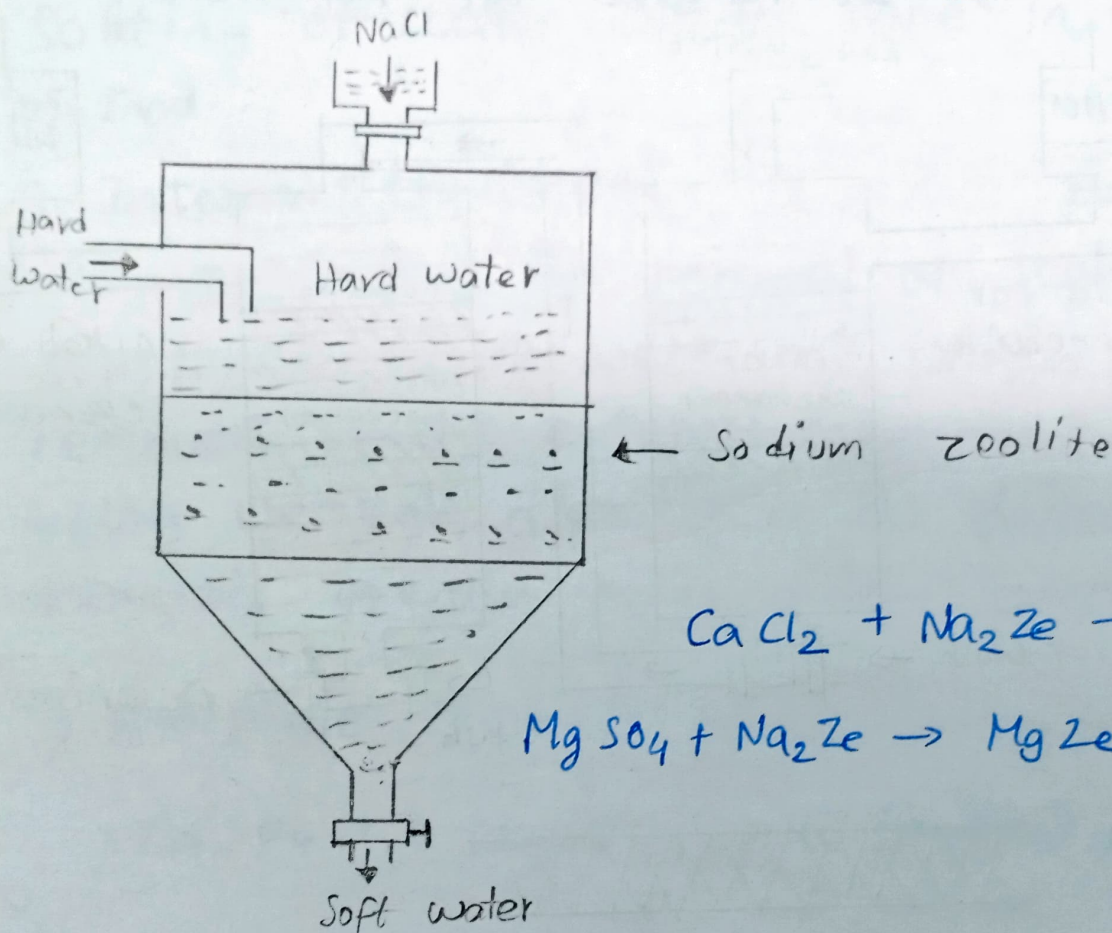 NaCl
Hard
Water
Hard water
← Sodium zeolite
CaCl₂ + Na₂Ze -
MgSO₄ + Na₂Ze → MgZe
Soft water